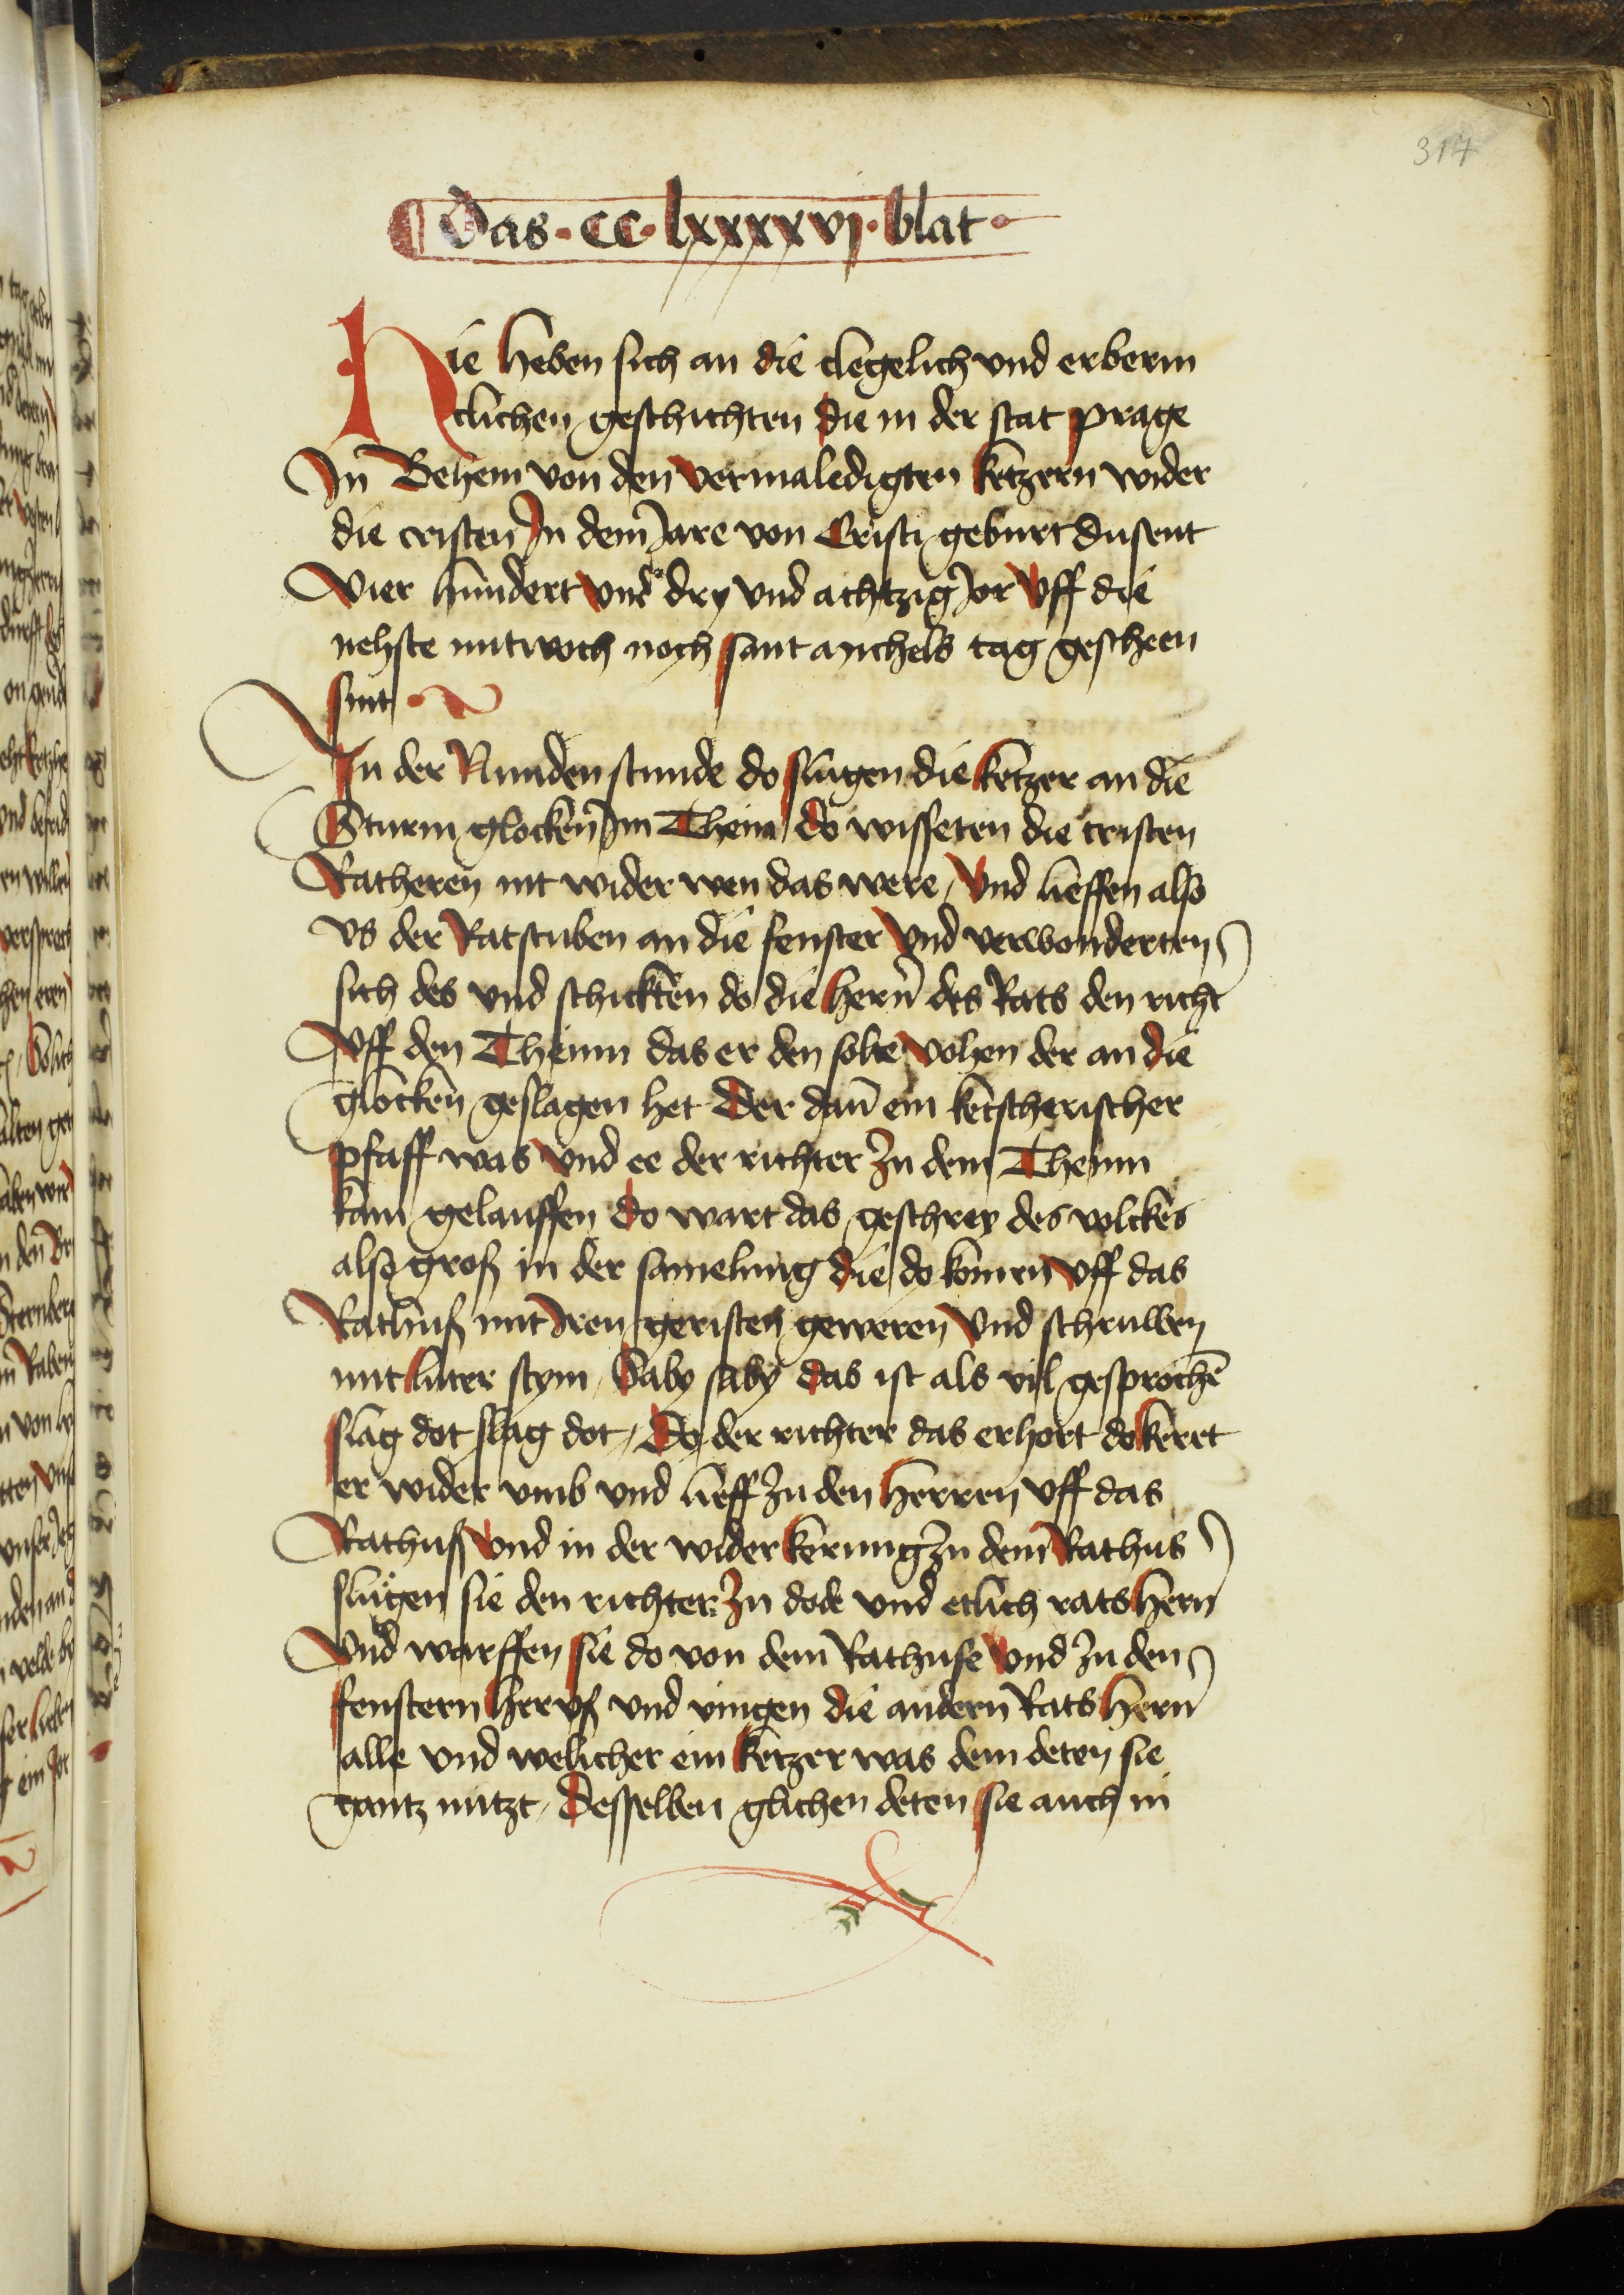 317
Das · cc · lxxxxvj · blat ·
Hie heben sich an die clegelich vnd erberm
clichen geschichten die in der stat prage
In Behem von den vermaledigten ketzern wider
die cristen In dem Jare von Cristi geburt dusent
Vier hundert vnd dry vnd achtzig Jor Vff die
nehste mitwoch noch sant michels tag gescheen
sint
In der Nunden stunde do slugen die ketzer an die
Sturm glocken Im Thein do wisseten die cristen
Ratheren nit wider wen das were / Vnd lieffen also
vs der Ratstuben an die fenster Vnd verwonderten
sich des vnd schickten do die hern des Rats den richt
Vff den Theinn das er den solte Vohen der an die
glocken geslagen het Der dan ein ketscherischer
pfaff was Vnd ee der richter Zu dem Theinn
kam gelauffen Do wart das geschrey des volckes
also groß in der samelung die do komen Vff das
Rathuß mit Iren geristen geweren Vnd schruwen
mit luter stym / Saby saby das ist als vil gesprochē
slag dot slag dot / Do der richter das erhort do keret
er wider vmb vnd lieff Zu den herren Vff das
Rathuß Vnd in der widerkerung Zu dem Rathus
slugen sie den richter Zu dode vnd etlich ratshern
Vnd warffen sie do von dem Rathuse Vnd Zu den
fenstern heruß vnd vingen die andern Ratshern
alle vnd welicher ein ketzer was dem deten sie
gantz nützt / Desselben glichen deten sie auch in